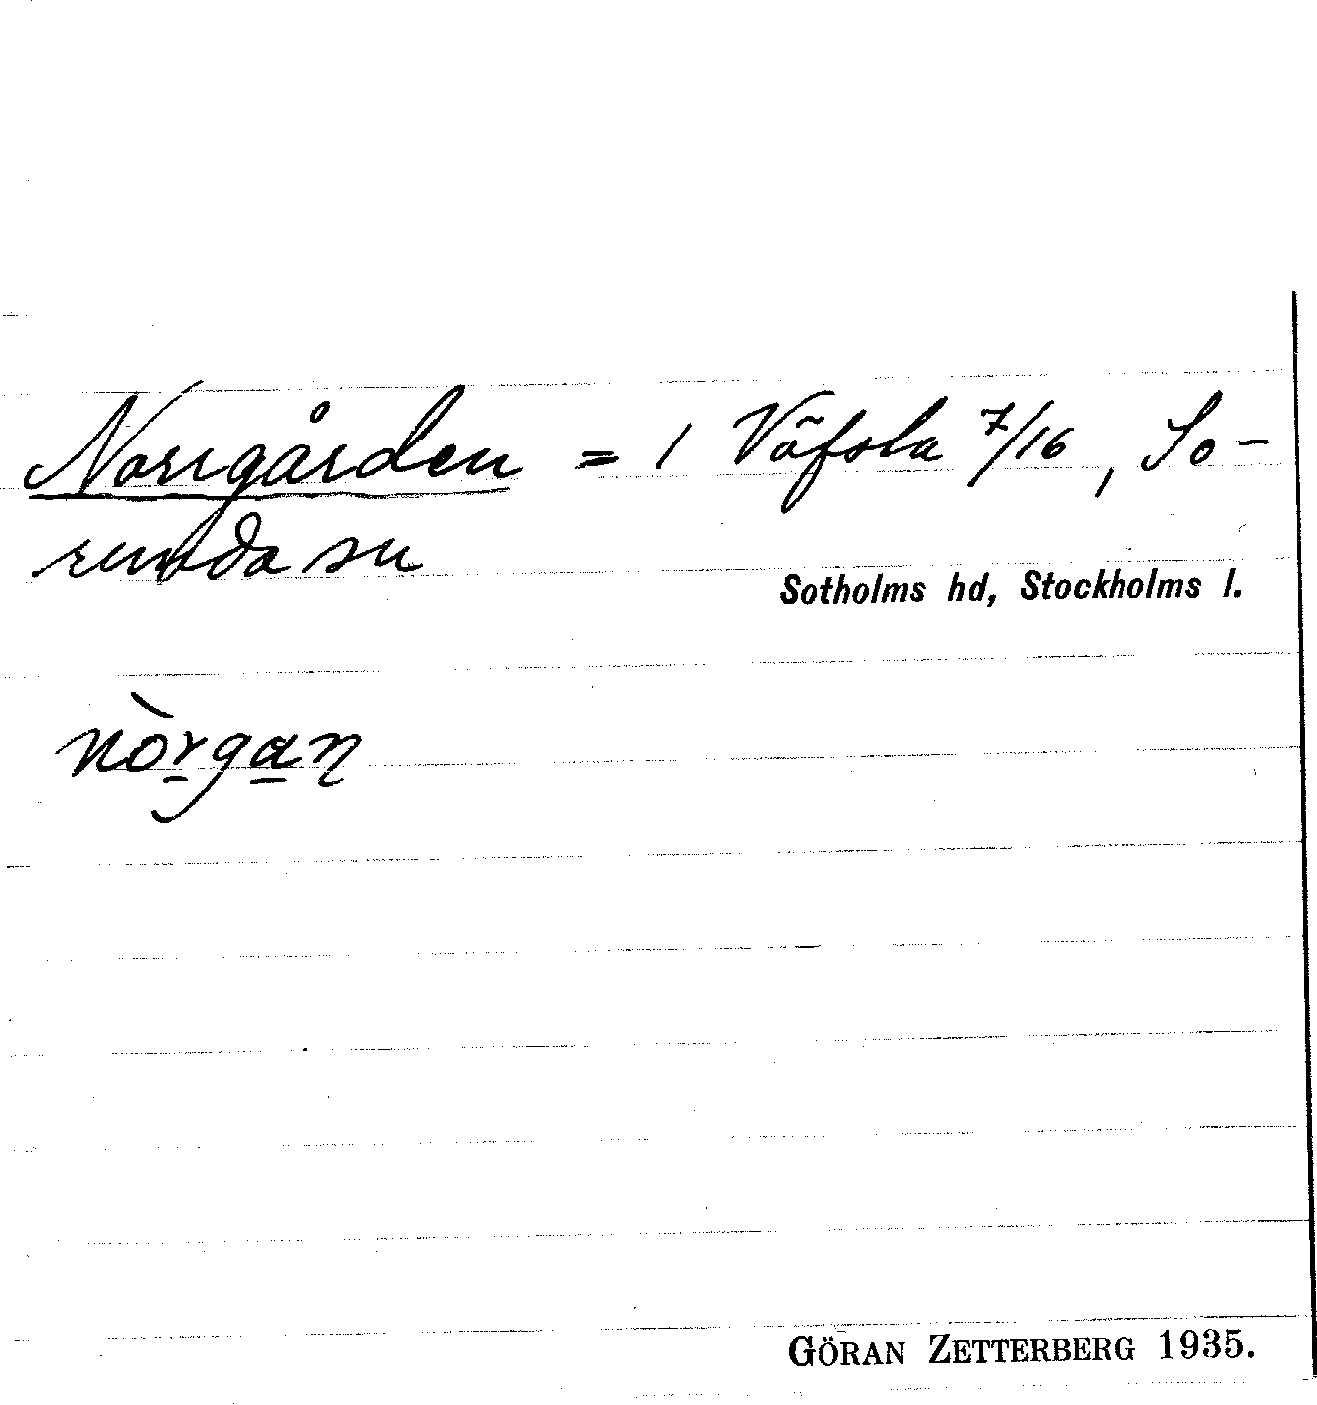 Norrgården = 1 Väfsla 7/16, So-
runda sn
Sotholms hd, Stockholms l.
nòrgaṉ
GÖRAN ZETTERBERG 1935.